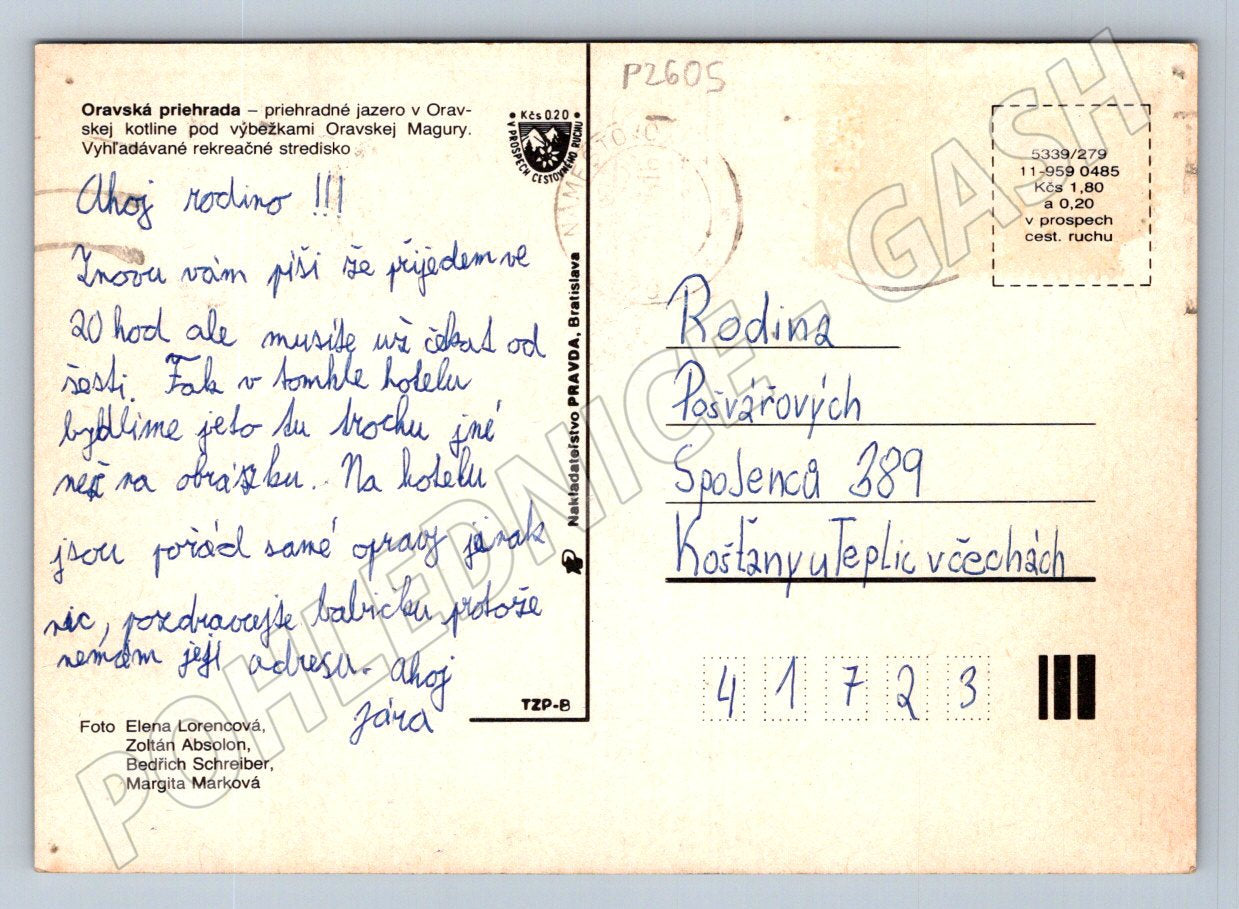 P2605
Oravská priehrada – priehradné jazero v Orav-
skej kotline pod výbežkami Oravskej Magury.
Vyhľadávané rekreačné stredisko
Kčs 0.20
V PROSPECH CESTOVNÉHO RUCHU
NÁMESTOVO
5339/279
11-959 0485
Kčs 1,80
a 0,20
v prospech
cest. ruchu
Ahoj rodino !!!
Znovu vám píši že přijedem ve
20 hod ale musíte už čekat od
šesti. Fak v tomhle hotelu
bydlíme jeto tu trochu jné
než na obrázku. Na hotelu
jsou pořád samé opravy jinak
nic, pozdravujte babičku protože
nemám její adresu. Ahoj
Jára
Foto Elena Lorencová,
Zoltán Absolon,
Bedřich Schreiber,
Margita Marková
Nakladateľstvo PRAVDA, Bratislava
TZP-B
Rodina
Pošvářových
Spojenců 389
Košťany u Teplic v čechách
41723
POHLEDNICE - GASH